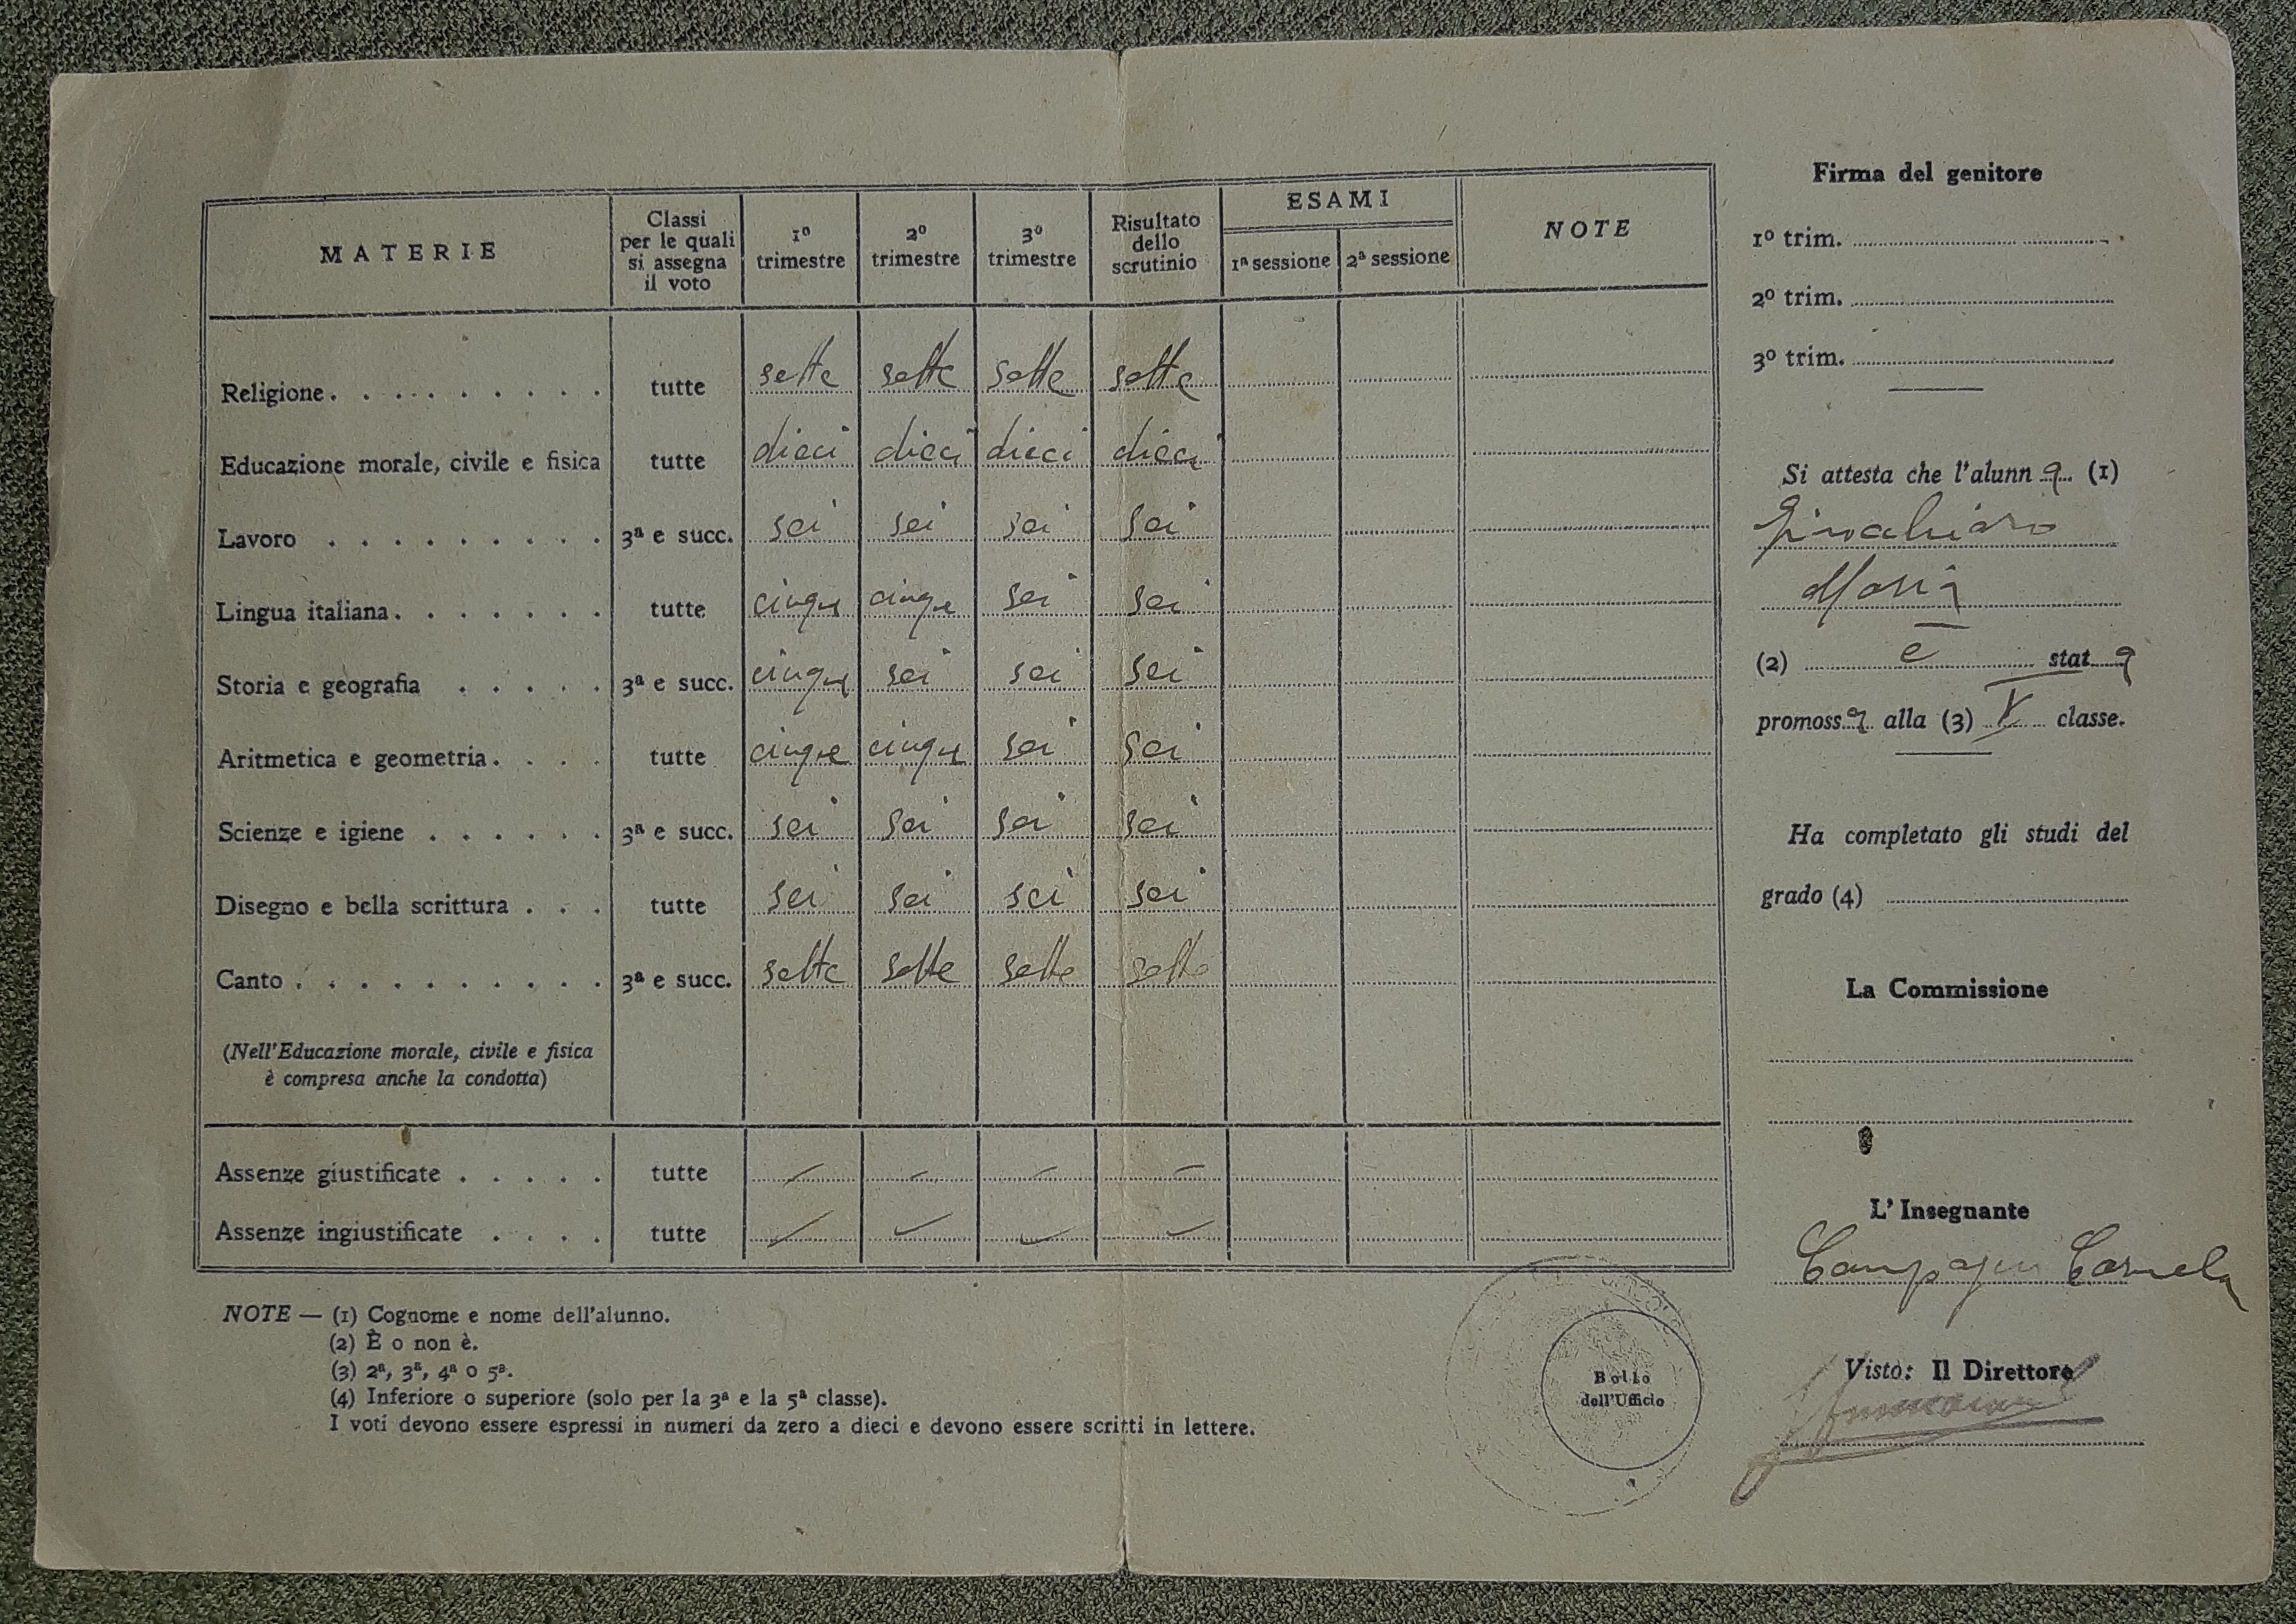 MATERIE
Classi per le quali si assegna il voto
1º trimestre
2º trimestre
3º trimestre
Risultato dello scrutinio
ESAMI
1ª sessione
2ª sessione
NOTE
Religione . . . . . . . . . tutte sette sette sette sette
Educazione morale, civile e fisica tutte dieci dieci dieci dieci
Lavoro . . . . . . . . . 3ª e succ. sei sei sei sei
Lingua italiana . . . . . . . tutte cinque cinque sei sei
Storia e geografia . . . . . 3ª e succ. cinque sei sei sei
Aritmetica e geometria . . . . tutte cinque cinque sei sei
Scienze e igiene . . . . . . 3ª e succ. sei sei sei sei
Disegno e bella scrittura . . . tutte sei sei sei sei
Canto . . . . . . . . . . 3ª e succ. sette sette sette sette
(Nell'Educazione morale, civile e fisica
è compresa anche la condotta)
Assenze giustificate . . . . . tutte
Assenze ingiustificate . . . . tutte
NOTE — (1) Cognome e nome dell'alunno.
(2) È o non è.
(3) 2ª, 3ª, 4ª o 5ª.
(4) Inferiore o superiore (solo per la 3ª e la 5ª classe).
I voti devono essere espressi in numeri da zero a dieci e devono essere scritti in lettere.
Bollo
dell'Ufficio
Firma del genitore
1º trim.
2º trim.
3º trim.
Si attesta che l'alunna (1)
Maria
(2) è stata
promossa alla (3) V classe.
Ha completato gli studi del
grado (4)
La Commissione
L'Insegnante
Carmela
Visto: Il Direttore